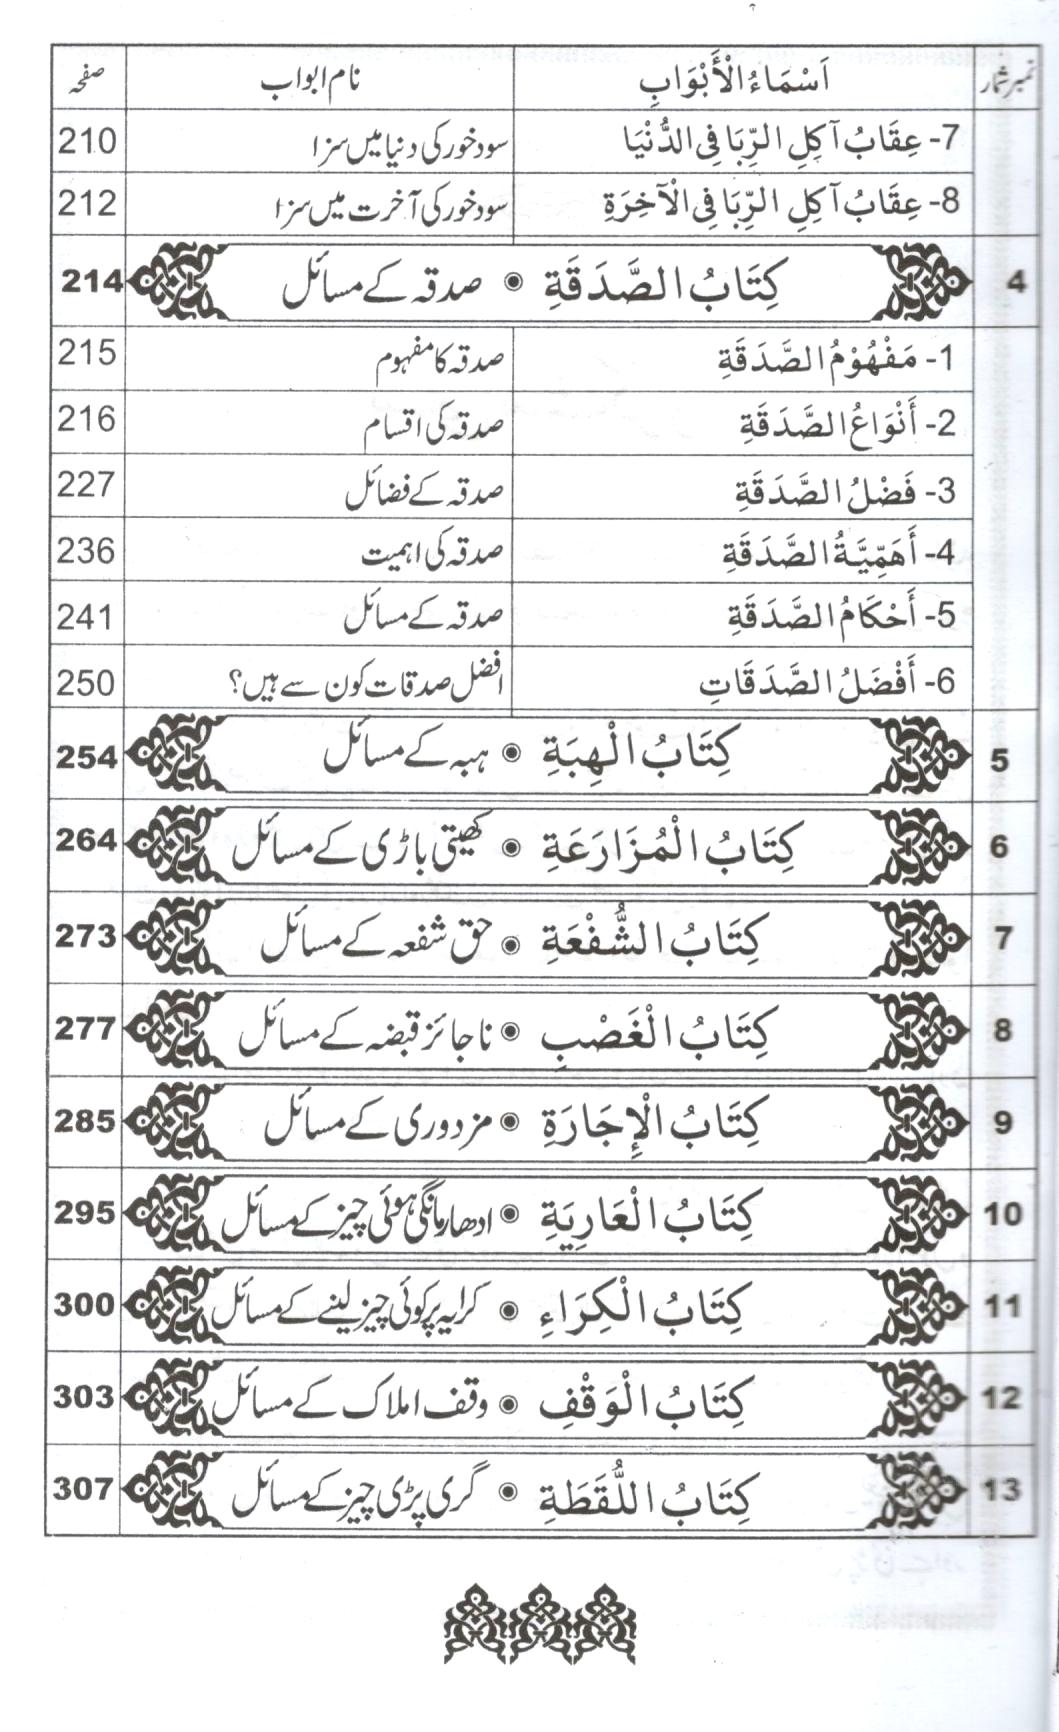 نمبر شمار اَسْمَاءُ الْأَبْوَابِ نام ابواب صفحہ
7- عِقَابُ آكِلِ الرِّبَا فِي الدُّنْيَا سود خور کی دنیا میں سزا 210
8- عِقَابُ آكِلِ الرِّبَا فِي الْآخِرَةِ سود خور کی آخرت میں سزا 212
4 كِتَابُ الصَّدَقَةِ ◉ صدقہ کے مسائل 214
1- مَفْهُوْمُ الصَّدَقَةِ صدقہ کا مفہوم 215
2- أَنْوَاعُ الصَّدَقَةِ صدقہ کی اقسام 216
3- فَضْلُ الصَّدَقَةِ صدقہ کے فضائل 227
4- أَهَمِّيَّةُ الصَّدَقَةِ صدقہ کی اہمیت 236
5- أَحْكَامُ الصَّدَقَةِ صدقہ کے مسائل 241
6- أَفْضَلُ الصَّدَقَاتِ افضل صدقات کون سے ہیں؟ 250
5 كِتَابُ الْهِبَةِ ◉ ہبہ کے مسائل 254
6 كِتَابُ الْمُزَارَعَةِ ◉ کھیتی باڑی کے مسائل 264
7 كِتَابُ الشُّفْعَةِ ◉ حق شفعہ کے مسائل 273
8 كِتَابُ الْغَصْبِ ◉ ناجائز قبضہ کے مسائل 277
9 كِتَابُ الْإِجَارَةِ ◉ مزدوری کے مسائل 285
10 كِتَابُ الْعَارِيَةِ ◉ ادھار مانگی ہوئی چیز کے مسائل 295
11 كِتَابُ الْكِرَاءِ ◉ کرایہ پر کوئی چیز لینے کے مسائل 300
12 كِتَابُ الْوَقْفِ ◉ وقف املاک کے مسائل 303
13 كِتَابُ اللُّقَطَةِ ◉ گری پڑی چیز کے مسائل 307